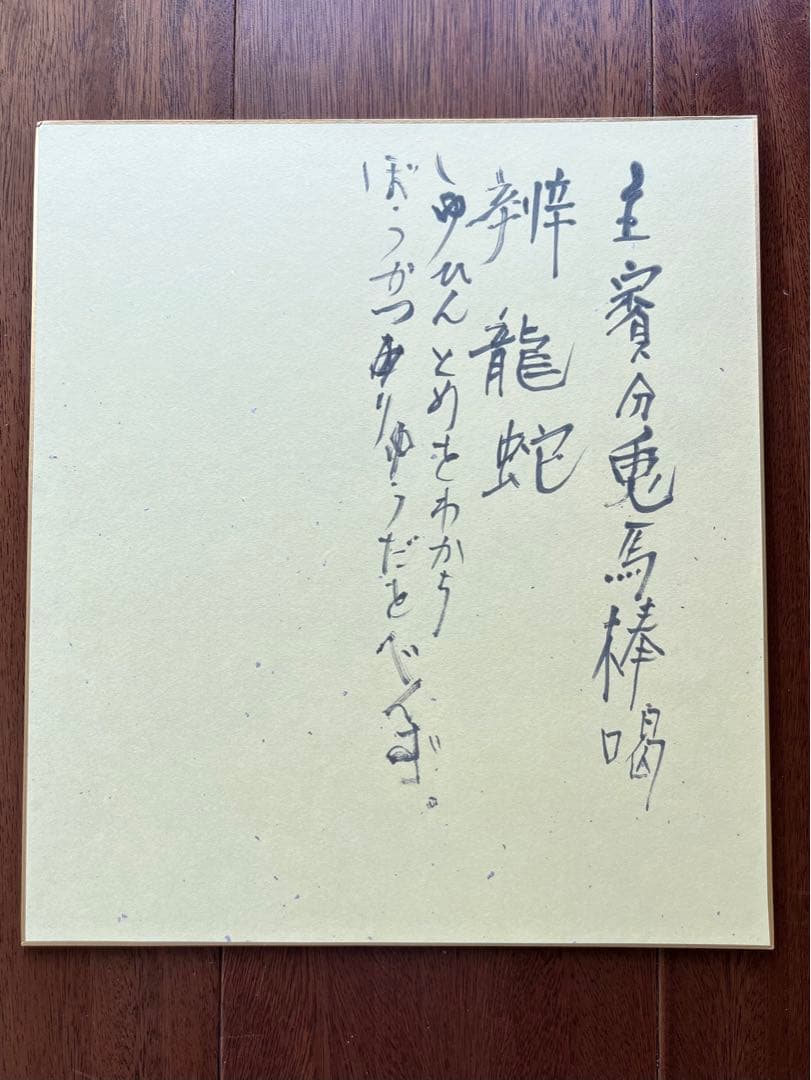 主賓分兎馬棒喝
辨龍蛇
しゅひんとめをわかち
ぼうかつありゅうだとべんず。